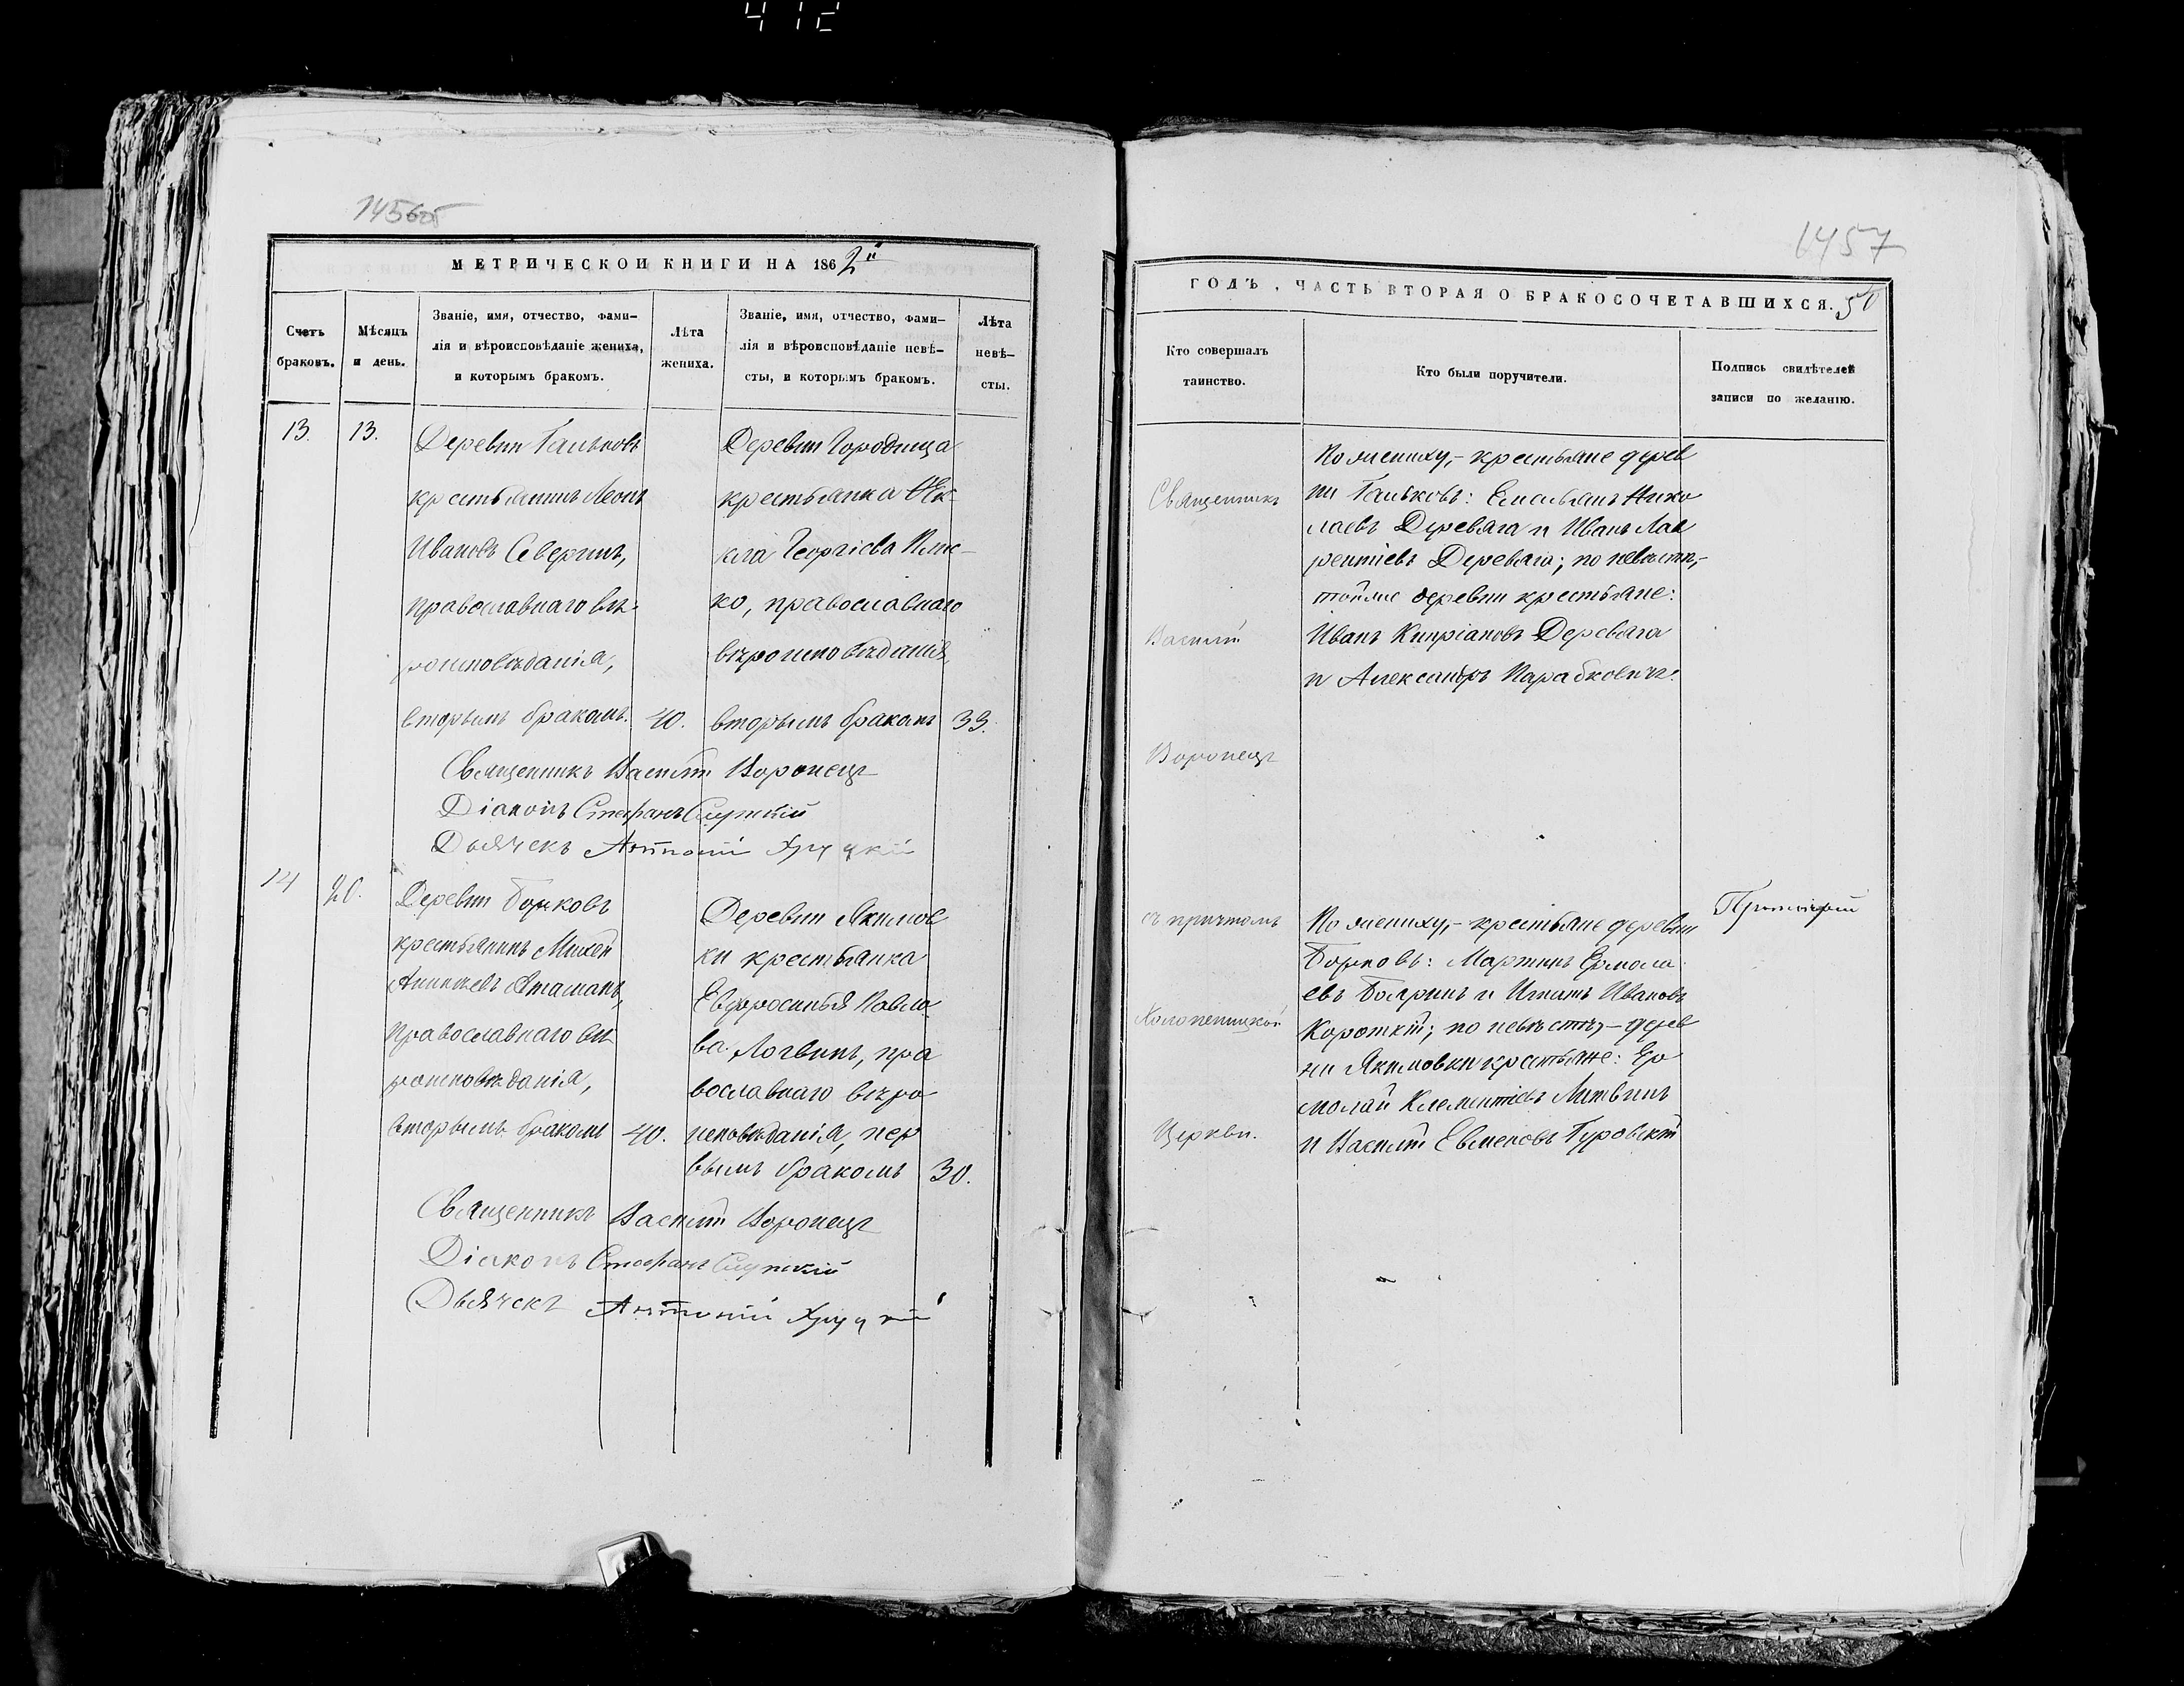 412
1456об
МЕТРИЧЕСКОЙ КНИГИ НА 1862й
Счетъ браковъ.
Мѣсяцъ и день.
Званіе, имя, отчество, фами-
лія и вѣроисповѣданіе жениха,
и которымъ бракомъ.
Лѣта жениха.
Званіе, имя, отчество, фами-
лія и вѣроисповѣданіе невѣ-
сты, и которымъ бракомъ.
Лѣта невѣ-
сты.
13.
13.
Деревни Галъковъ
крестьянинъ Леонъ
Ивановъ Северинъ,
православнаго вѣ-
роисповѣданія,
вторымъ бракомъ.
40.
Деревни Городища
крестьянка Ѳек
кла Георгіева
ко, православнаго
вѣроисповѣданія,
вторымъ бракомъ
33.
Священникъ Василій Воронецъ
Діаконъ Стефанъ Слупскій
Дьячекъ Антоній Хруцкій
14
20.
Деревни Борковъ
крестьянинъ Михей
Атаманъ,
православнаго вѣ
роисповѣданія,
вторымъ бракомъ
40.
Деревни Якимов
ки крестьянка
Евфросинья Павло
ва Логвинъ, пра
вославнаго вѣро
исповѣданія, пер
вымъ бракомъ
30.
Священникъ Василій Воронецъ
Діаконъ Стефанъ Слупскій
Дьячекъ Антоній Хруцкій
1457
ГОДЪ, ЧАСТЬ ВТОРАЯ О БРАКОСОЧЕТАВШИХСЯ. 50
Кто совершалъ
таинство.
Кто были поручители.
Подпись свидѣтелей
записи по желанію.
Священникъ
Василій
Воронецъ
съ причтомъ
Холопеницкой
Церкви.
По жениху,- крестьяне дерев
ни Галъковъ: Емельянъ Нико
лаевъ Деревяга и Иванъ Лав
рентіевъ Деревяга; по невѣстѣ,-
тойже деревни крестьяне:
Иванъ Кипріановъ Деревяга
и Александръ Парабковичъ.
По жениху,- крестьяне деревни
Борковъ: Мартинъ Ермола
евъ Бояринъ и Игнатъ Ивановъ
Короткій; по невѣстѣ,- дерев
ни Якимовки крестьяне: Ер
молай Клементіевъ Литвинъ
и Василій Евменовъ Гуровскій